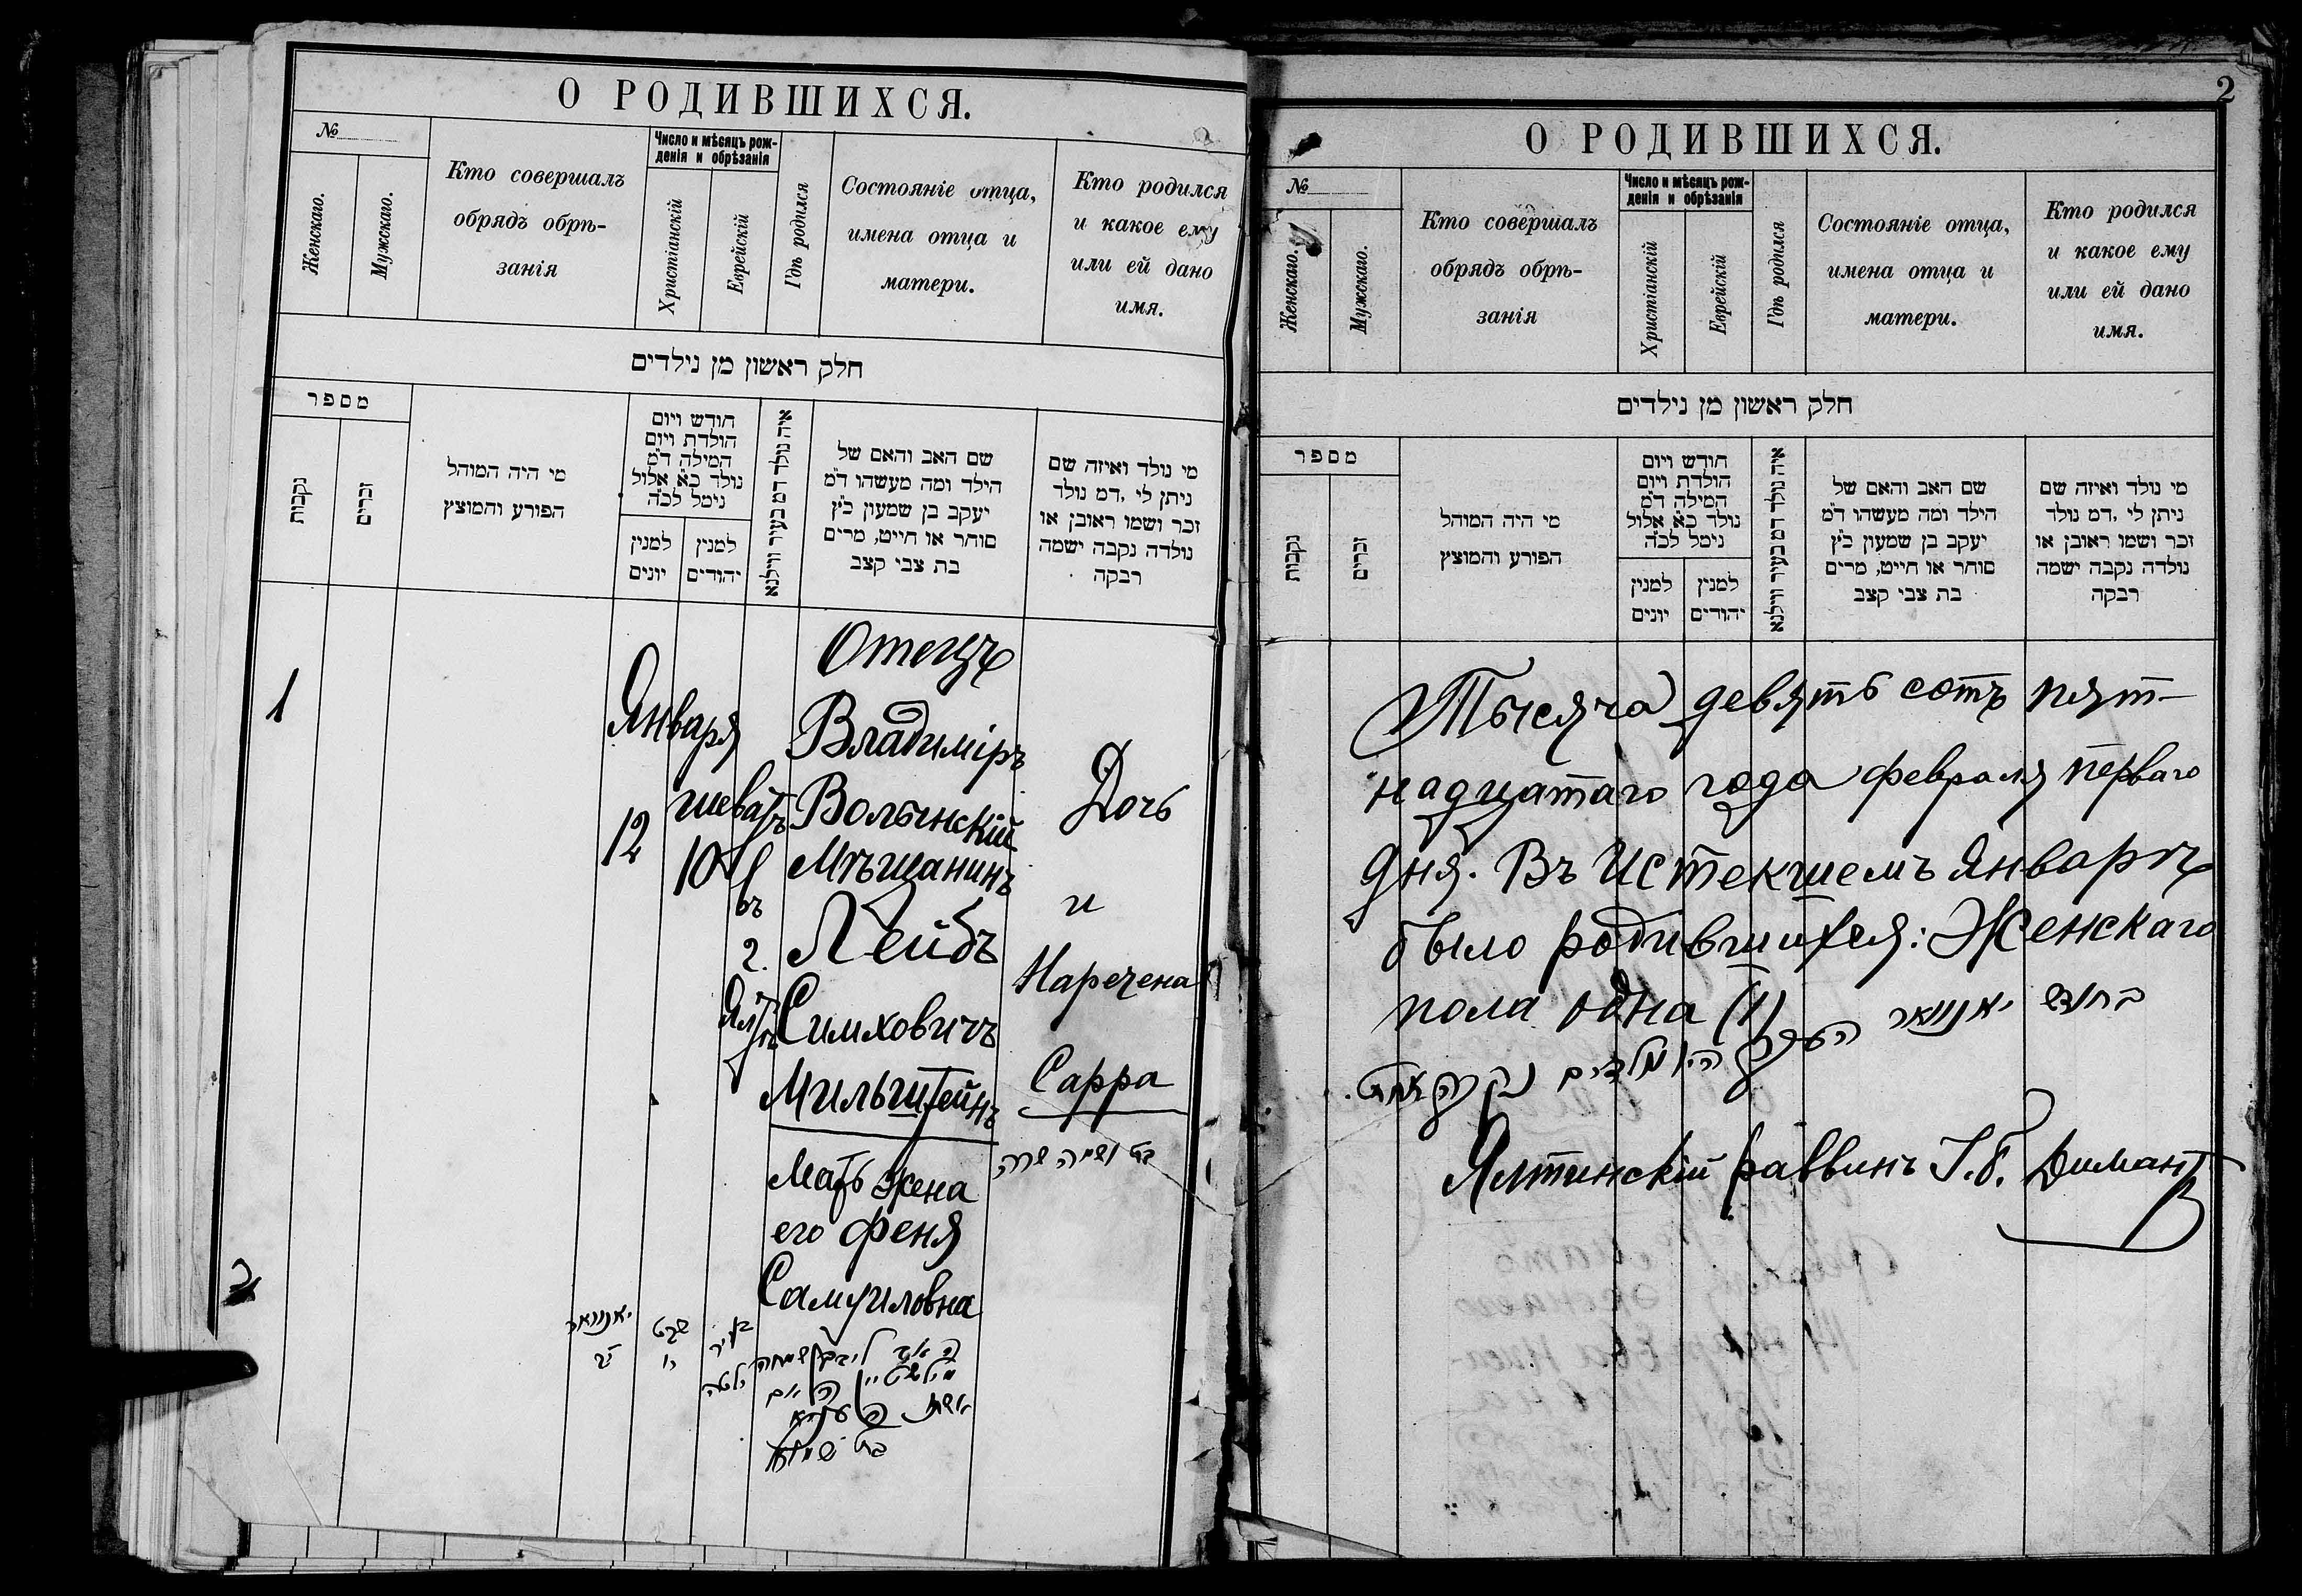 О РОДИВШИХСЯ.
№
Женскаго.
Мужскаго.
Кто совершалъ
обрядъ обрѣ-
занія
Число и мѣсяцъ рож-
денія и обрѣзанія
Христіанскій
Еврейскій
Гдѣ родился
Состояніе отца,
имена отца и
матери.
Кто родился
и какое ему
или ей дано
имя.
חלק ראשון מן נילדים
מספר
נקבות
זכרים
מי היה המוהל
הפורע והמוצץ
חודש ויום
הולדת ויום
המילה ד"מ
נולד כא אלול
נימל לכ"ה
למנין
יונים
למנין
יהודים
איה נולד דמ בעיר ווילנא
שם האב והאם של
הילד ומה מעשהו ד"מ
יעקב בן שמעון כ"ץ
סוחר או חייט, מרים
בת צבי קצב
מי נולד ואיזה שם
ניתן לי ,דמ נולד
זכר ושמו ראובן או
נולדה נקבה ישמה
רבקה
1
Января
12
шеватъ
10
въ
г.
Ялтѣ
Отецъ
Владиміръ
Волынскій
Мѣщанинъ
Лейбъ
Симховичъ
Мильштейнъ
Мать жена
его Феня
Самуиловна
Дочь
и
Наречена
Сарра
בת ושמה שרה
יאנוואר
יב
שבט
י
בעיר
ילטה
האב ליב בן שמחה
מילשטיין האם
אשתו
בת שמואל
2
О РОДИВШИХСЯ.
№
Женскаго.
Мужскаго.
Кто совершалъ
обрядъ обрѣ-
занія
Число и мѣсяцъ рож-
денія и обрѣзанія
Христіанскій
Еврейскій
Гдѣ родился
Состояніе отца,
имена отца и
матери.
Кто родился
и какое ему
или ей дано
имя.
חלק ראשון מן נילדים
מספר
נקבות
זכרים
מי היה המוהל
הפורע והמוצץ
חודש ויום
הולדת ויום
המילה ד"מ
נולד כא אלול
נימל לכ"ה
למנין
יונים
למנין
יהודים
איה נולד דמ בעיר ווילנא
שם האב והאם של
הילד ומה מעשהו ד"מ
יעקב בן שמעון כ"ץ
סוחר או חייט, מרים
בת צבי קצב
מי נולד ואיזה שם
ניתן לי ,דמ נולד
זכר ושמו ראובן או
נולדה נקבה ישמה
רבקה
Тысяча девятьсотъ пят-
надцатаго года февраля перваго
дня. Въ истекшемъ Январѣ
было родившихся: Женскаго
пола одна (1)
בחודש יאנוואר
היו נולדים נקבה אחת.
Ялтинскій раввинъ І.б. Димантъ